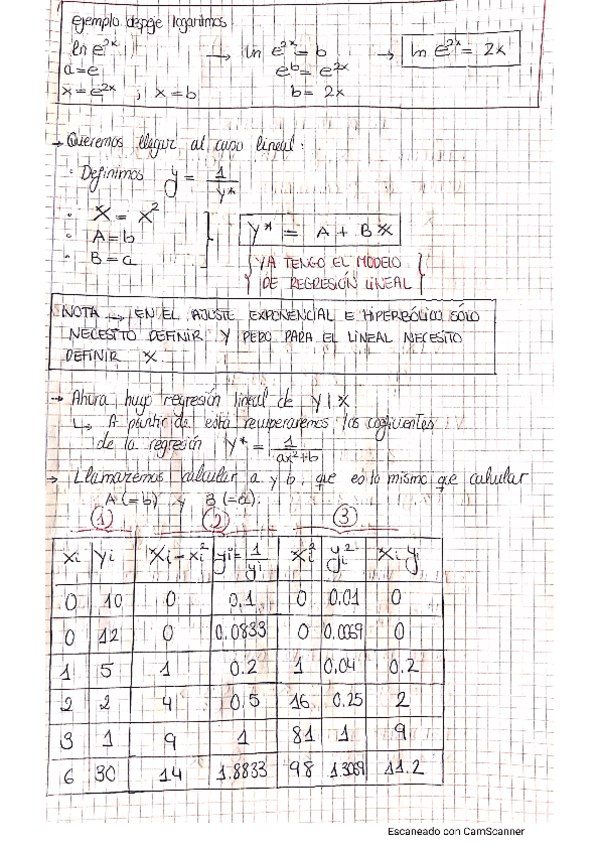 Ejemplo despeje logaritmos
ln e^2x → ln e^2x = b → ln e^2x = 2x
a = e e^b = e^2x
x = e^2x ; x = b b = 2x
→ Queremos llegar al caso lineal:
· Definimos y = 1/y*
· X = x²
· A = b Y* = A + BX
· B = a
YA TENGO EL MODELO
DE REGRESIÓN LINEAL
NOTA → EN EL AJUSTE EXPONENCIAL E HIPERBÓLICO SÓLO
NECESITO DEFINIR Y PERO PARA EL LINEAL NECESITO
DEFINIR X.
→ Ahora hago regresión lineal de Y|X
↳ A partir de esta recuperaremos los coeficientes
de la regresión Y* = 1/ax²+b
→ Llamaremos calcular a y b, que es lo mismo que calcular
A (=b) y B (=a).
① ② ③
xi yi Xi = xi² yi = 1/yi Xi² yi² Xi yi
0 10 0 0,1 0 0,01 0
0 12 0 0.0833 0 0.0069 0
1 5 1 0.2 1 0,04 0.2
2 2 4 0.5 16 0.25 2
3 1 9 1 81 1 9
6 30 14 1.8833 98 1.3069 11.2
Escaneado con CamScanner